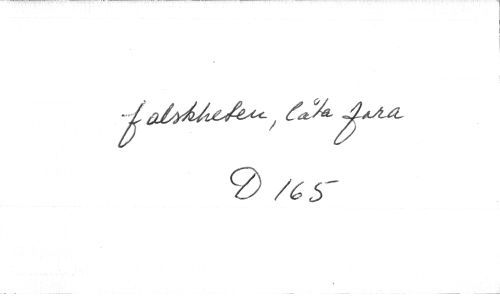 falskheten, låta fara
D 165